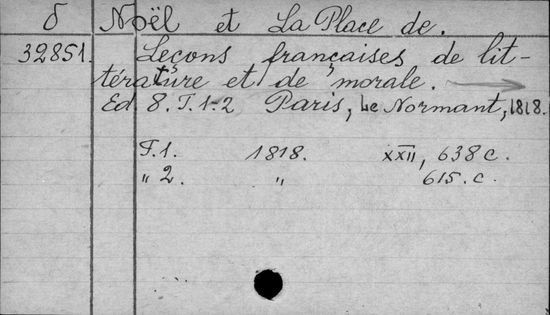 δ Noël et La Place de.
32851. Leçons françaises de lit-
térature et de morale.
Ed 8. T. 1-2 Paris, Le Normant, 1818.
T. 1. 1818. XXII, 638 c.
„ 2. „ 615. c.